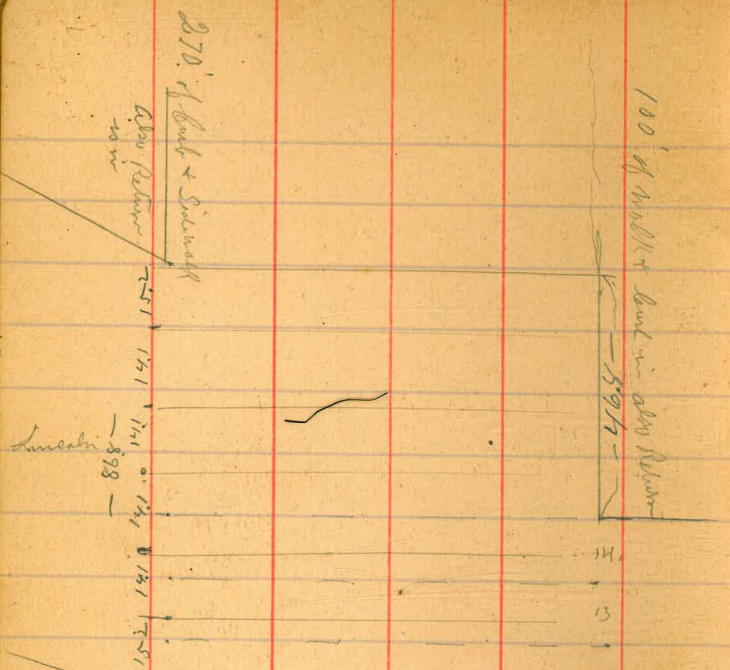 270' of Curb & Sidewalk
Also Return
is in
100' of Walk & Curb in also Return
Lincoln
— 898 —
14.1
14.1
14.1
14.1
14.
13